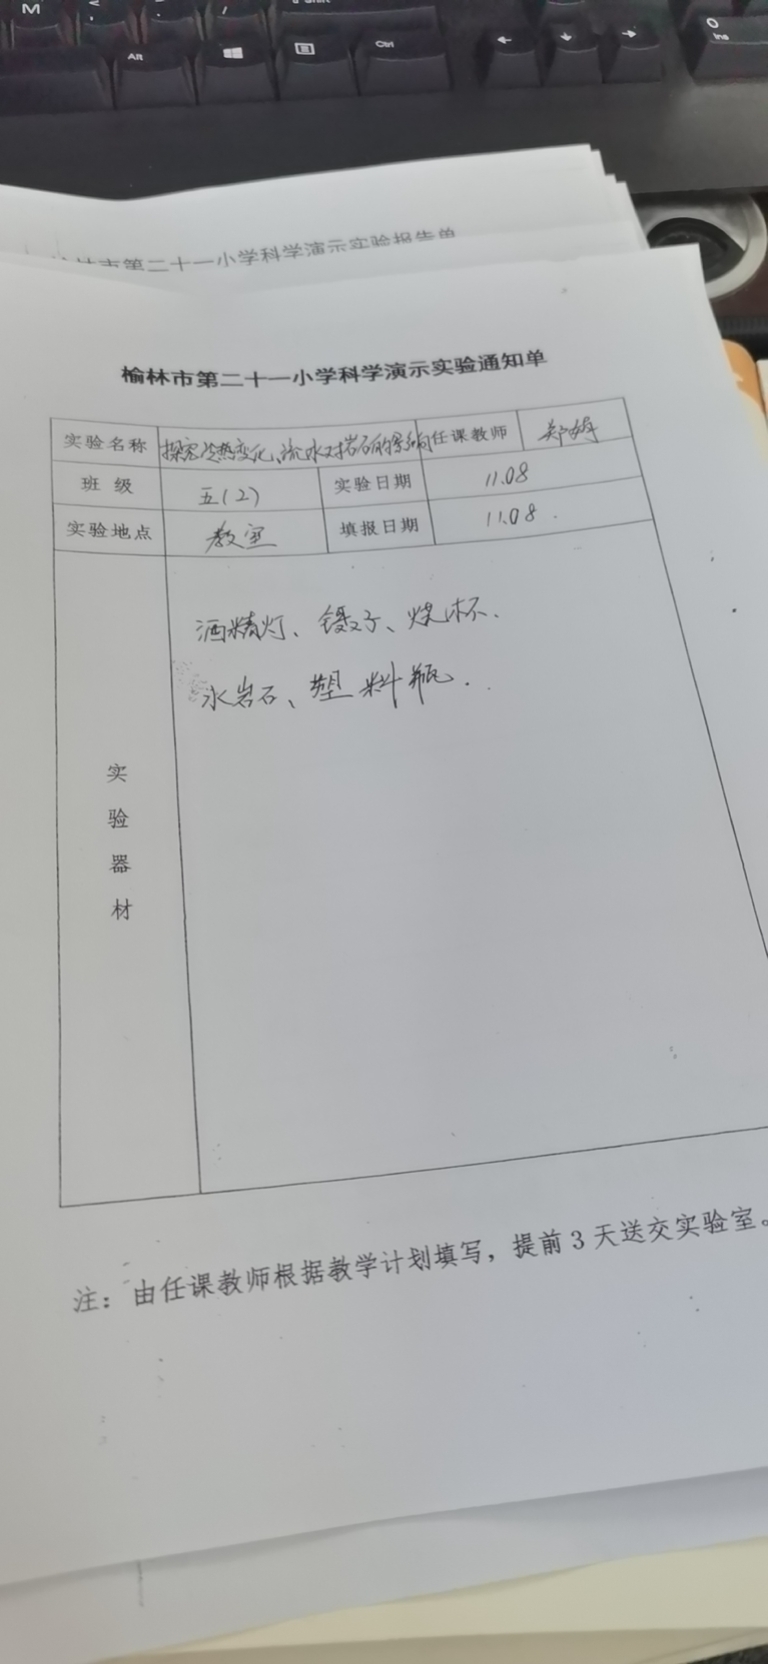 M
Alt
Ctrl
0
Ins
林市第二十一小学科学演示实验报告单
榆林市第二十一小学科学演示实验通知单
实验名称 探究冷热变化、流水对岩石的影响 任课教师 郑婷
班 级 五(2) 实验日期 11.08
实验地点 教室 填报日期 11.08.
酒精灯、镊子、烧杯、
水岩石、塑料瓶.
实
验
器
材
注：由任课教师根据教学计划填写，提前3天送交实验室。